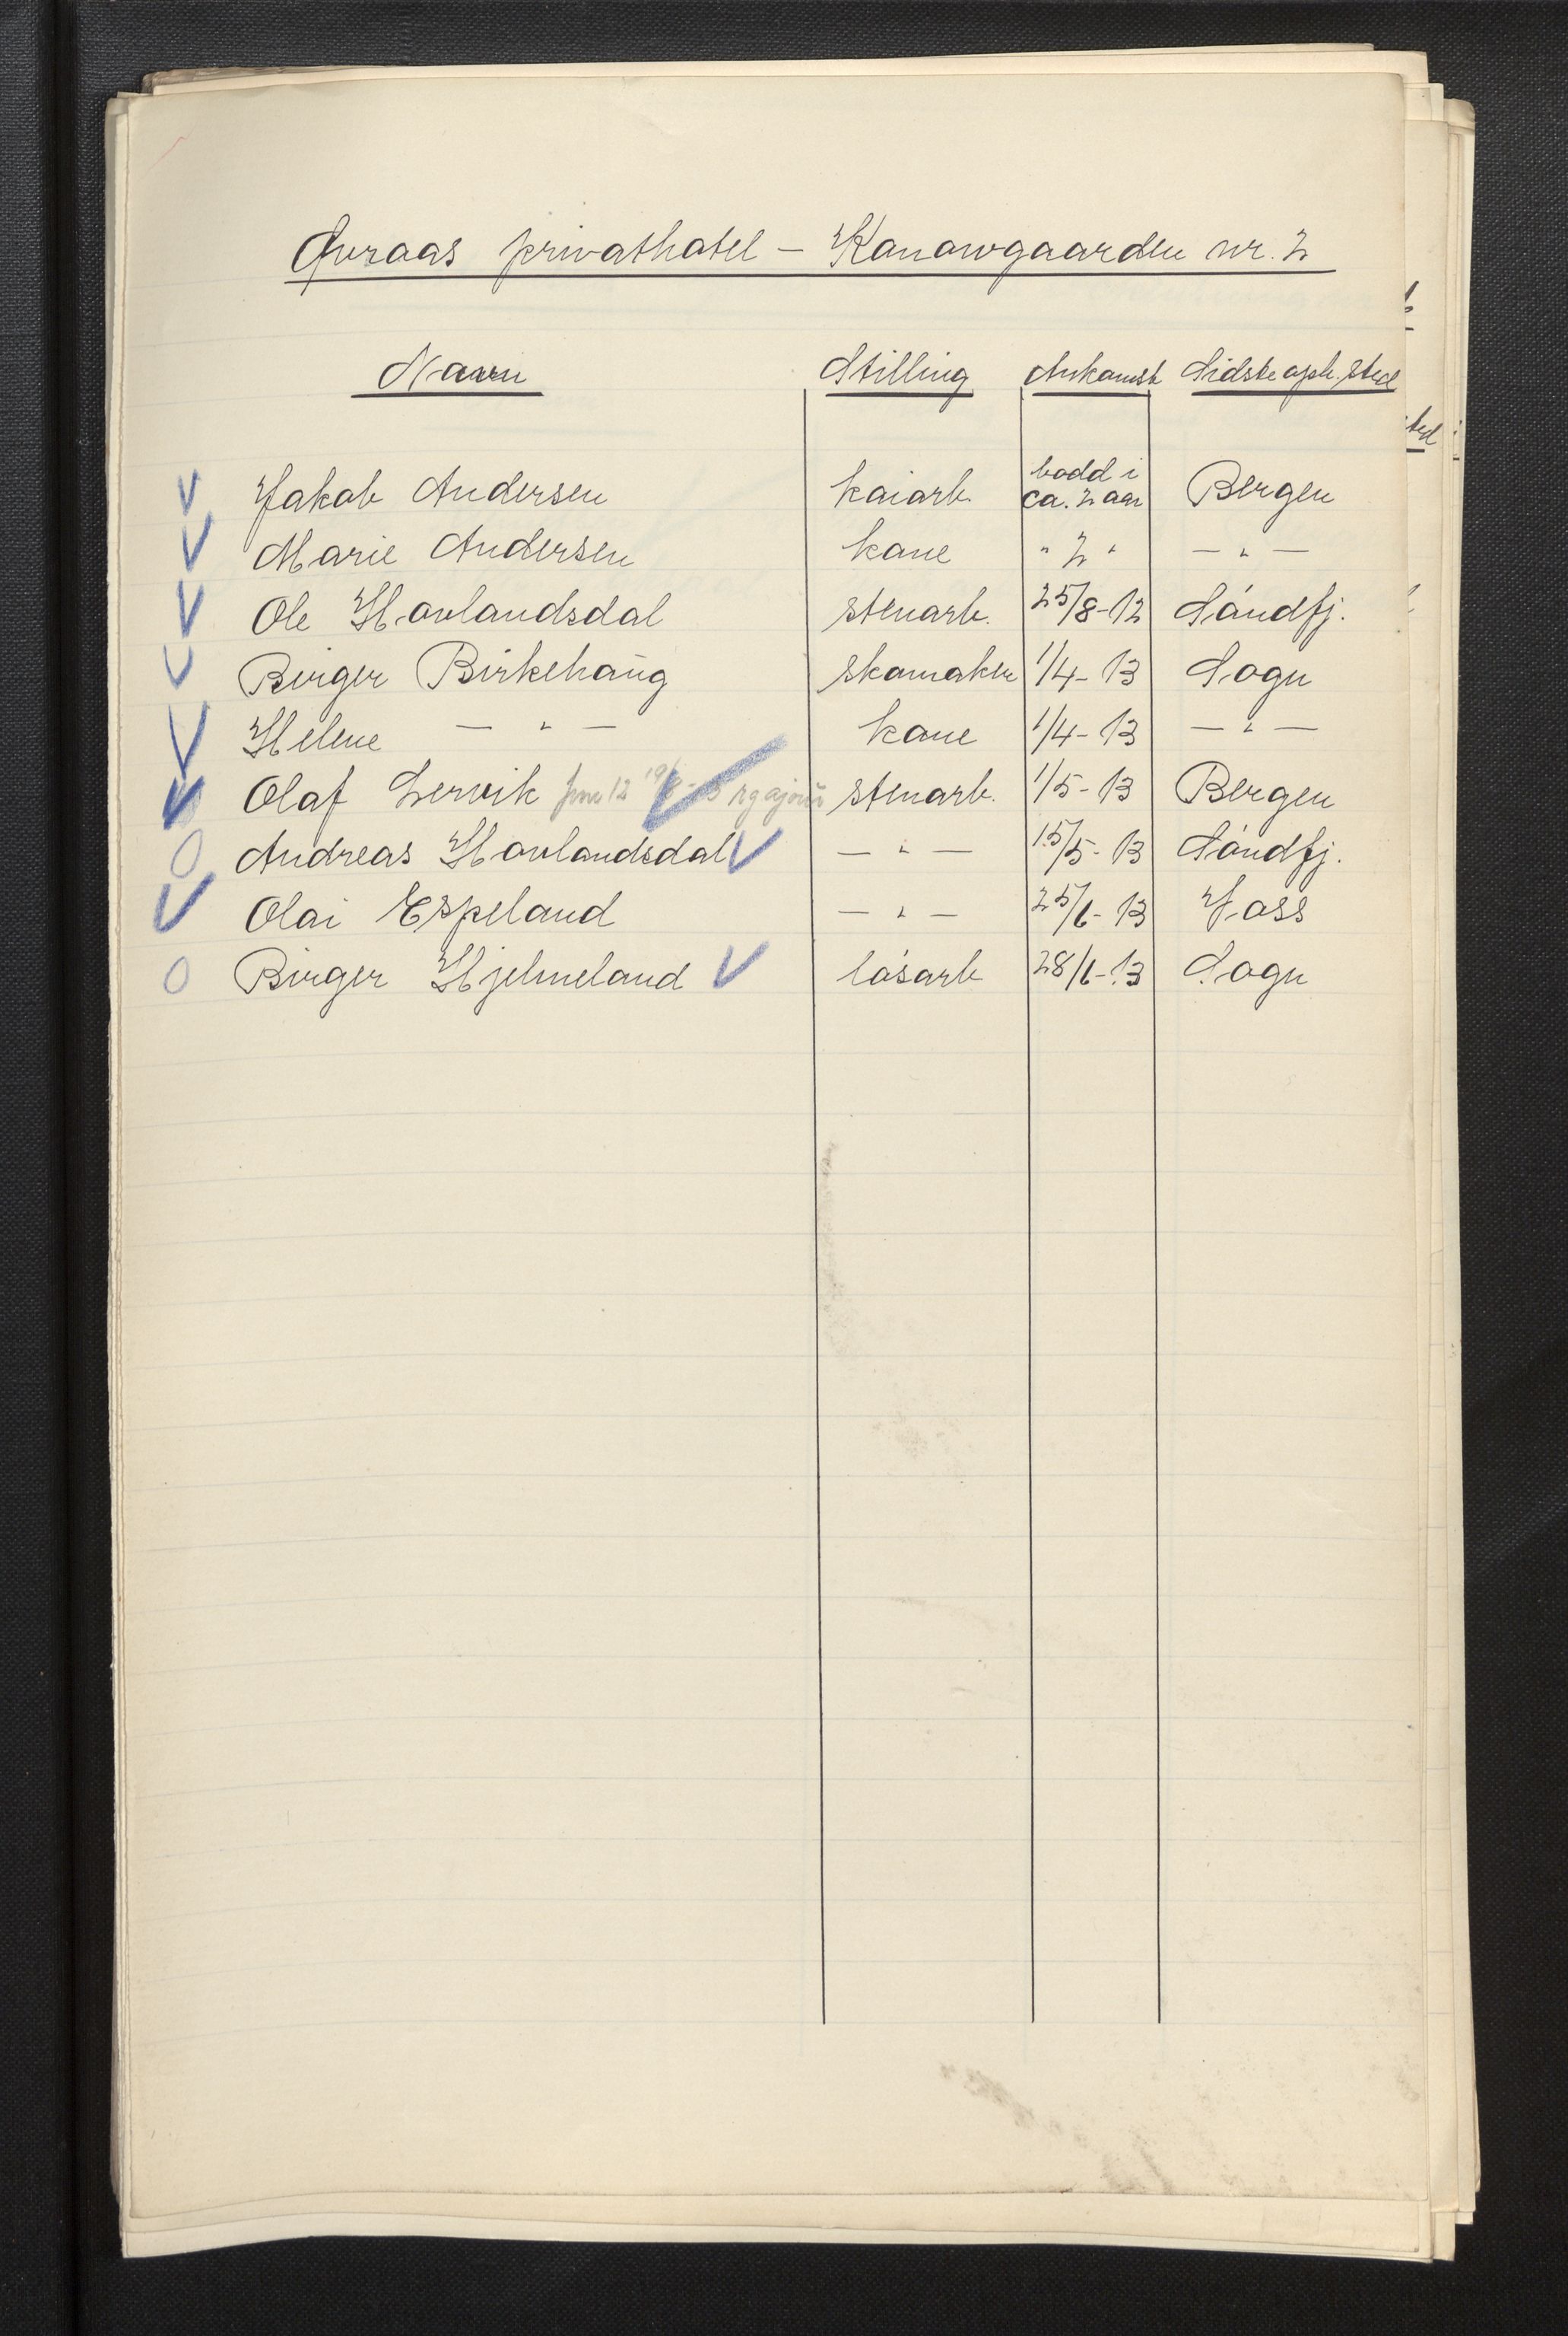 Avraas privathotel – Konowgaarden nr. 2
Navn Stilling Ankomst Sidste oph. sted
Jakob Andersen kaiarb. bodd i ca. 2 aar Bergen
Marie Andersen kone " 2 " — " —
Ole Hovlandsdal stenarb. 25/8-12 Söndfj.
Birger Birkehaug skomaker 1/4-13 Sogn
Helene — " — kone 1/4-13 — " —
Olaf Lervik stenarb. 1/5-13 Bergen
Andreas Hovlandsdal — " — 15/5-13 Söndfj.
Olai Espeland — " — 25/6-13 Voss
Birger Hjelmeland lösarb 28/6-13 Sogn